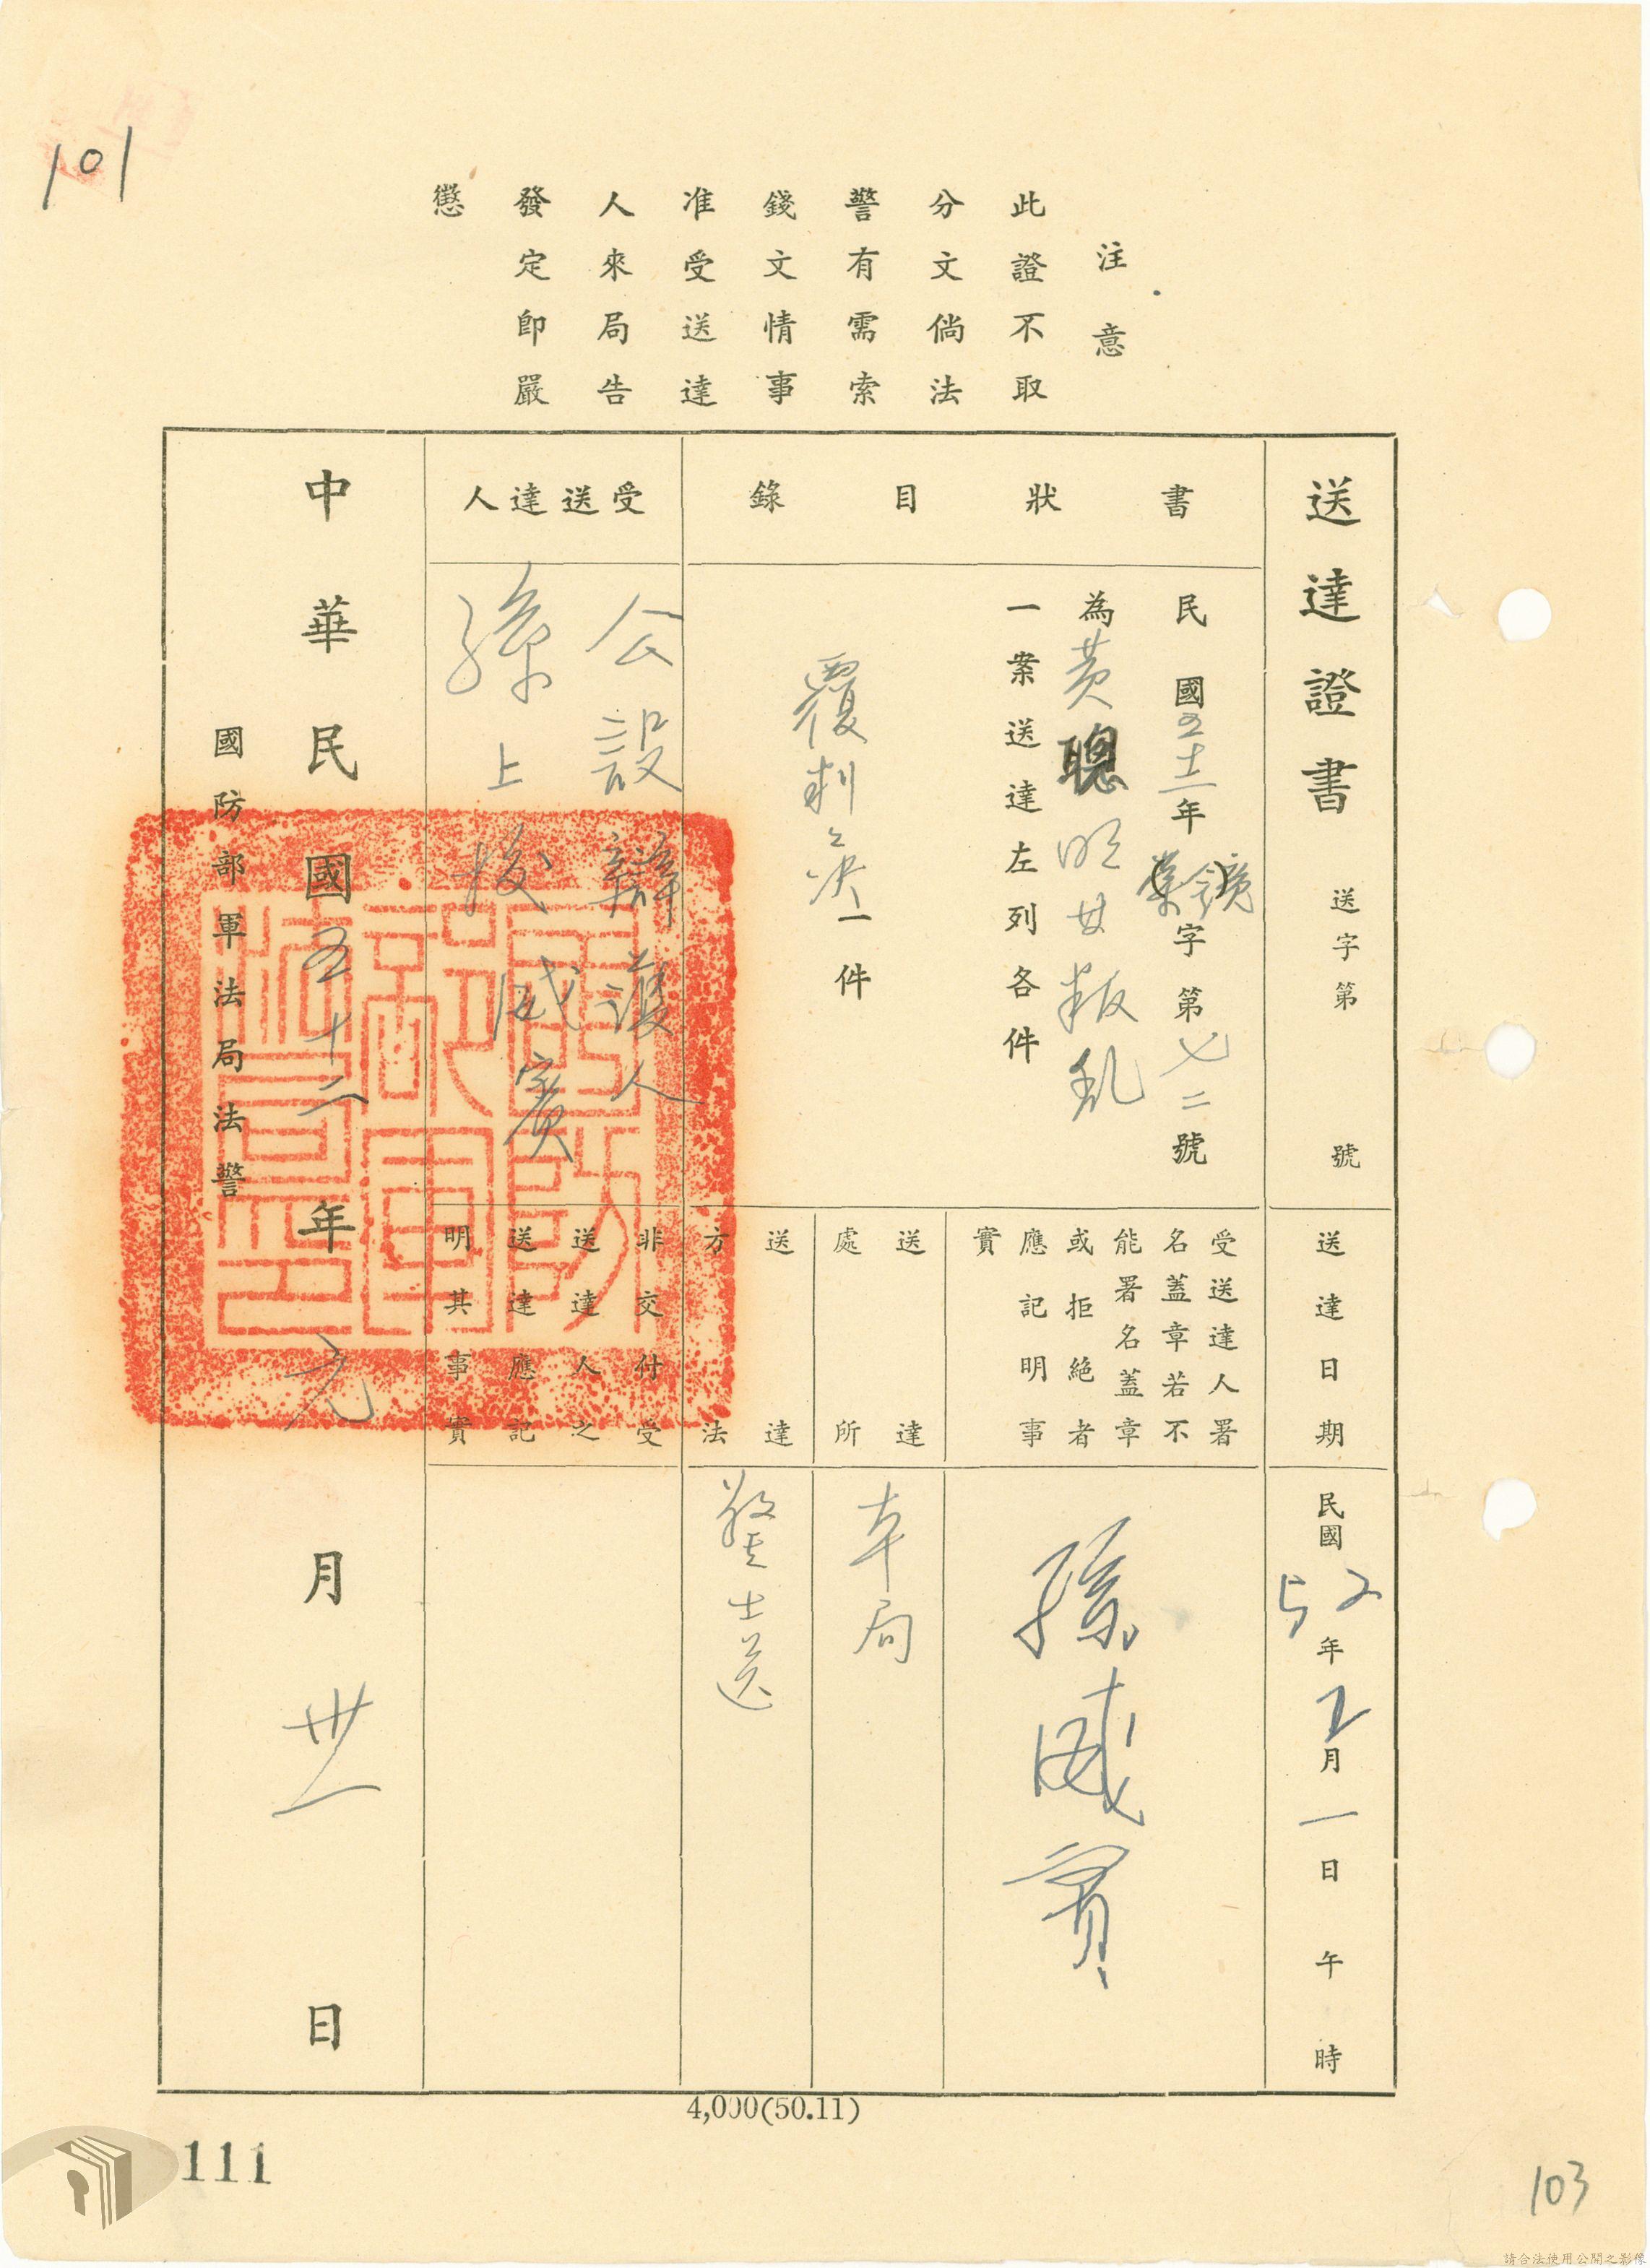 101
注意
此證不取
分文倘法
警有需索
錢文情事
准受送達
人來局告
發定即嚴
懲
送達證書 送字第 號
書狀目錄
民國五十二年
字第七二號
為黃聰明等叛亂
一案送達左列各件
覆判決一件
受送達人
公設辯護人
孫上校威賓
送達日期
民國52年2月一日午時
受送達人署
名蓋章若不
能署名蓋章
或拒絕者
應記明事
實
孫威賓
送達
處所
本局
送達
方法
警士送
非交付受
送達人之
送達應記
明其事實
中華民國五十二年元月卅一日
國防部軍法局法警
4,000(50.11)
111
103
請合法使用公開之影像